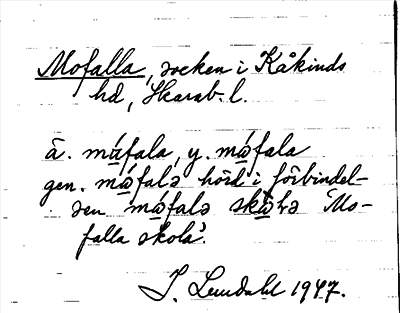 Mofalla, socken i Kåkinds
hd, Skarab. l.
ä. múfala, y. máfala
gen. máfalə hörd i förbindel-
sen máfalə skùlə 'Mo-
falla skola'.
I. Lundahl 1947.